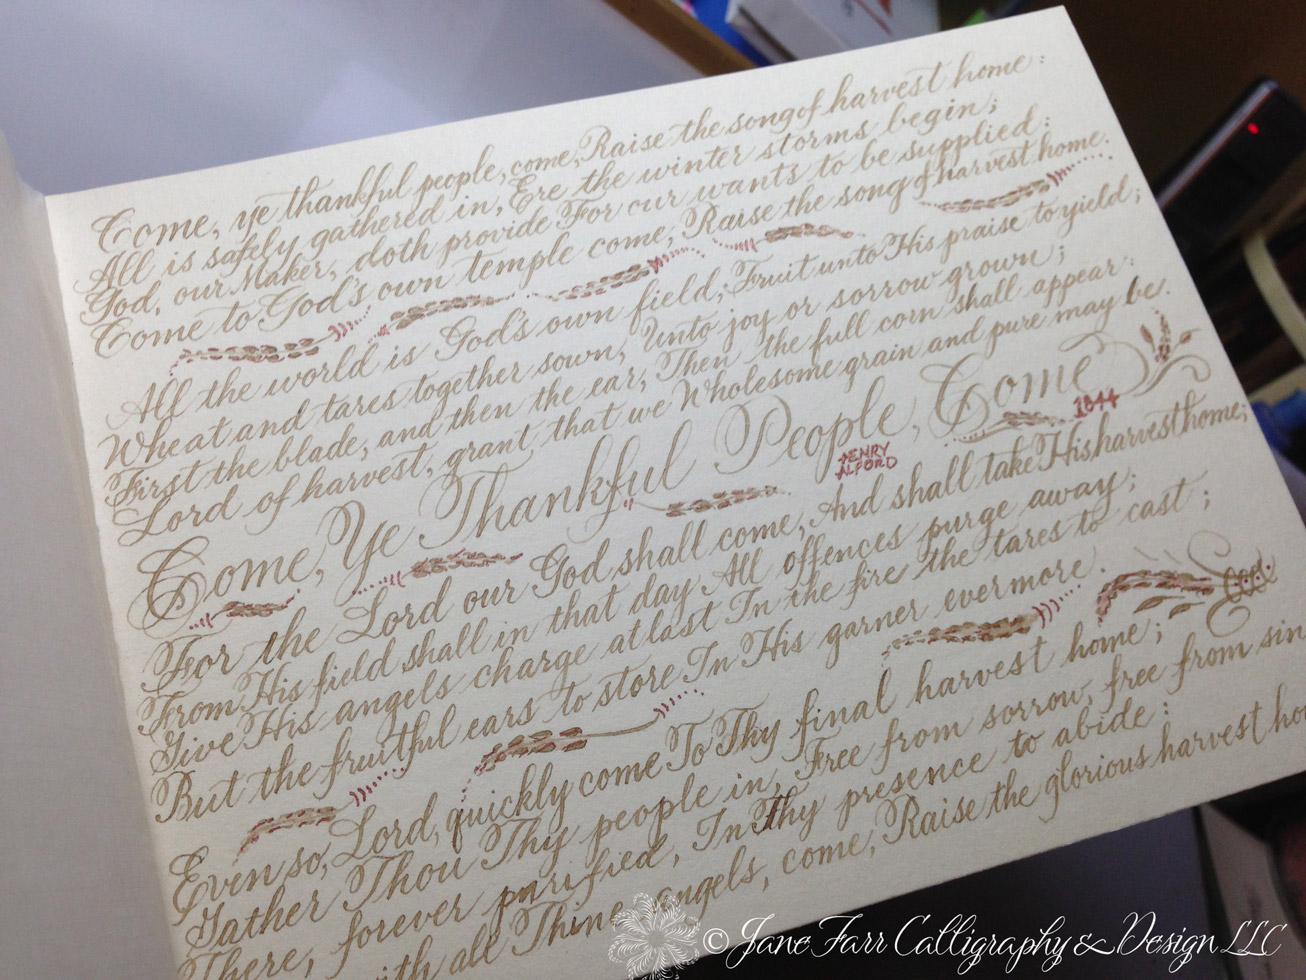 Come, ye thankful people, come, Raise the song of harvest home:
All is safely gathered in, Ere the winter storms begin;
God, our Maker, doth provide For our wants to be supplied:
Come to God's own temple come; Raise the song of harvest home.
All the world is God's own field, Fruit unto His praise to yield;
Wheat and tares together sown, Unto joy or sorrow grown;
First the blade, and then the ear, Then the full corn shall appear:
Lord of harvest, grant that we Wholesome grain and pure may be.
Come, Ye Thankful People, Come
HENRY ALFORD
1844
For the Lord our God shall come, And shall take His harvest home;
From His field shall in that day All offences purge away;
Give His angels charge at last In the fire the tares to cast;
But the fruitful ears to store In His garner evermore.
Even so, Lord, quickly come To Thy final harvest home;
Gather Thou Thy people in, Free from sorrow, free from sin
There, forever purified, In Thy presence to abide:
with all Thine angels, come, Raise the glorious harvest ho
© Jane Farr Calligraphy & Design LLC